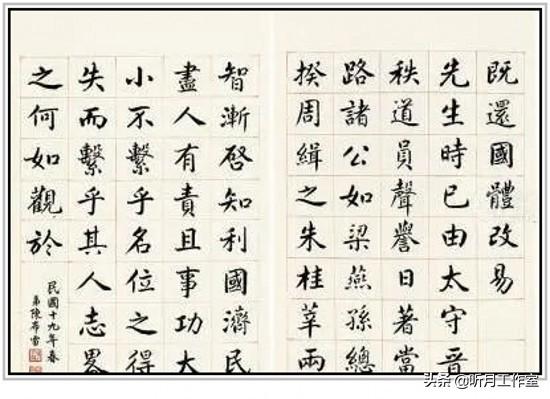 既還國體改易
先生時已由太守晉
秩道員聲譽日著當
路諸公如梁燕孫總
揆周緝之朱桂莘兩
智漸啓知利國濟民
盡人有責且事功大
小不繫乎名位之得
失而繫乎其人志畧
之何如觀於
民國十九年春
弟陳布雷
头条@听月工作室